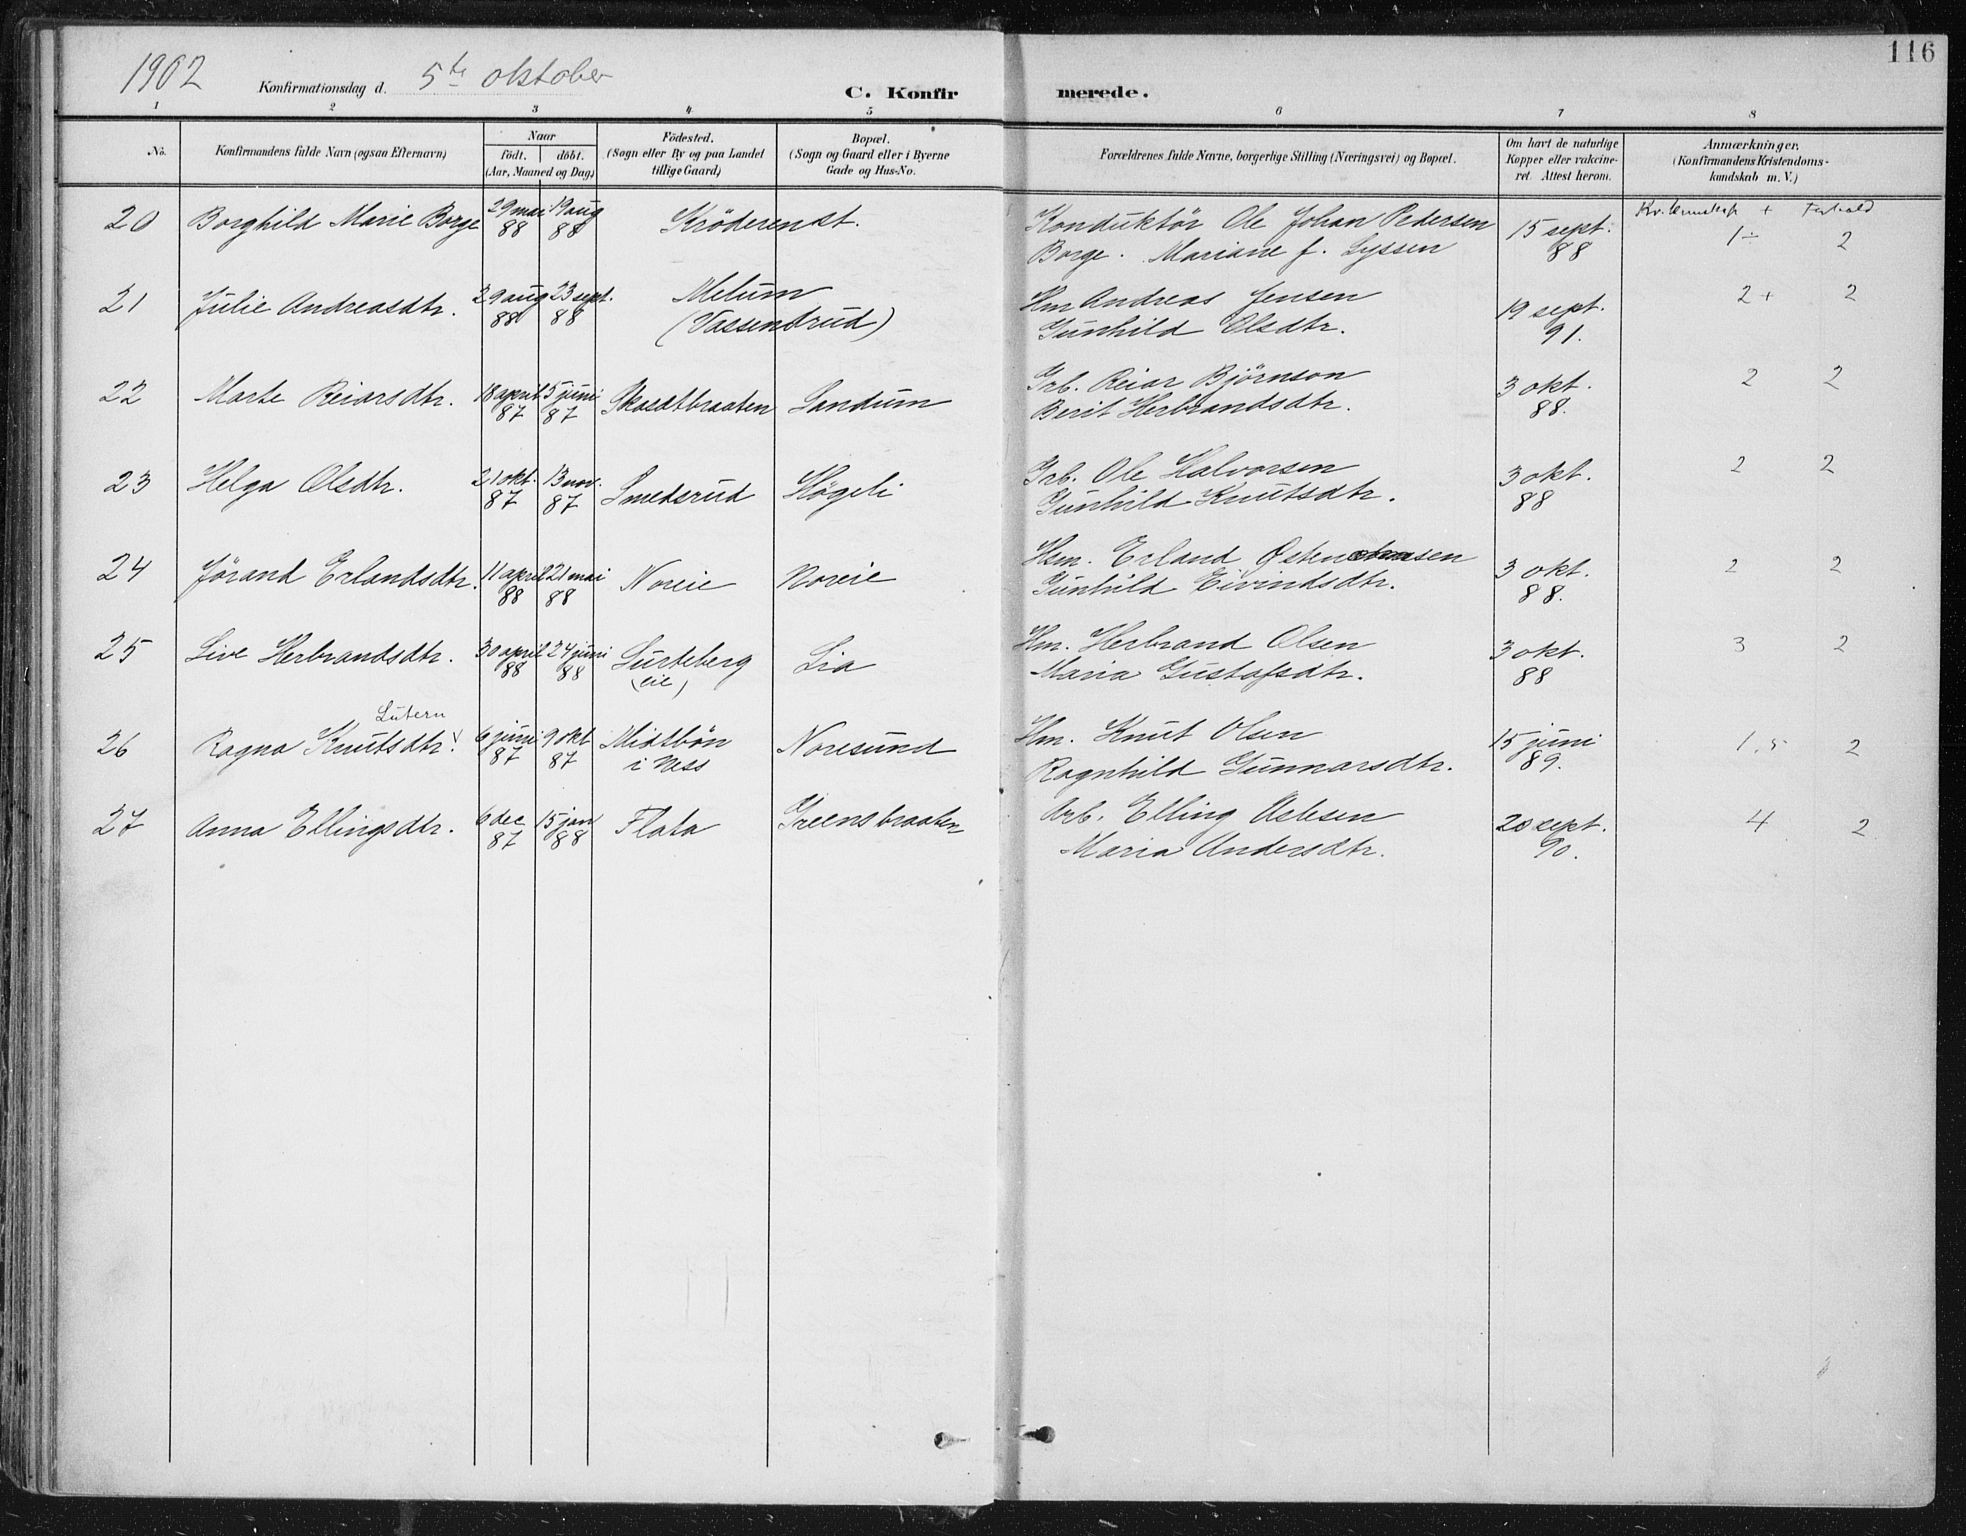 116
1902 Konfirmationsdag d. 5te oktober C. Konfirmerede.
1 2 3 4 5 6 7 8
No. Konfirmandens fulde Navn (ogsaa Efternavn) Naar födt. döbt. (Aar, Maaned og Dag) Födested. (Sogn eller By og paa Landet tillige Gaard) Bopæl. (Sogn og Gaard eller i Byerne Gade og Hus-No. Forældrenes fulde Navne, borgerlige Stilling (Næringsvei) og Bopæl. Om havt de naturlige Kopper eller vakcineret. Attest herom. Anmærkninger. (Konfirmandens Kristendomskundskab m. V.)
Kr. kunnskap + Forhold
20 Borghild Marie Borge 29 mai 88 19 aug 88 Kröderen st. Konduktör Ole Johan Pedersen 15 sept. 88 1÷ 2
Borge. Mariane f. Lyssen
21 Julie Andreasdtr. 29 aug 88 23 sept. 88 Melum Hm Andreas Jensen 19 sept. 91. 2+ 2
(Vassendrud) Gunhild Olsdtr.
22 Marte Reiarsdtr. 18 april 87 5 juni 87 Skaratbraaten Sandum Grb. Reiar Björnson 3 okt. 88. 2 2
Berit Herbrandsdtr.
23 Helga Olsdtr. 21 okt. 87 13 nov. 87 Smedsrud Høgeli Grb. Ole Halvorsen 3 okt. 88 2 2
Gunhild Knutsdtr.
24 Jørand Erlandsdtr. 11 april 88 21 mai 88 Noreie Noreie Hsm. Erland Østensen 3 okt. 88. 2 2
Gunhild Eivindsdtr.
25 Live Herbrandsdtr. 30 april 88 24 juni 88 Gurteberg Lia Hm. Herbrand Olsen 3 okt. 88 3 2
(eie) Maria Gustafsdtr.
Lutern
26 Ragna Knutsdtr. 6 juni 87 9 okt 87 Midtbön Noresund Hm. Knut Olsen 15 juni 89. 1,5 2
i Ness Ragnhild Gunnarsdtr.
27 Anna Ellingsdtr. 6 dec 87 15 jan 88 Flata Greensbraaten Arb. Elling Aslesen 20 sept. 90. 4 2
Maria Andersdtr.